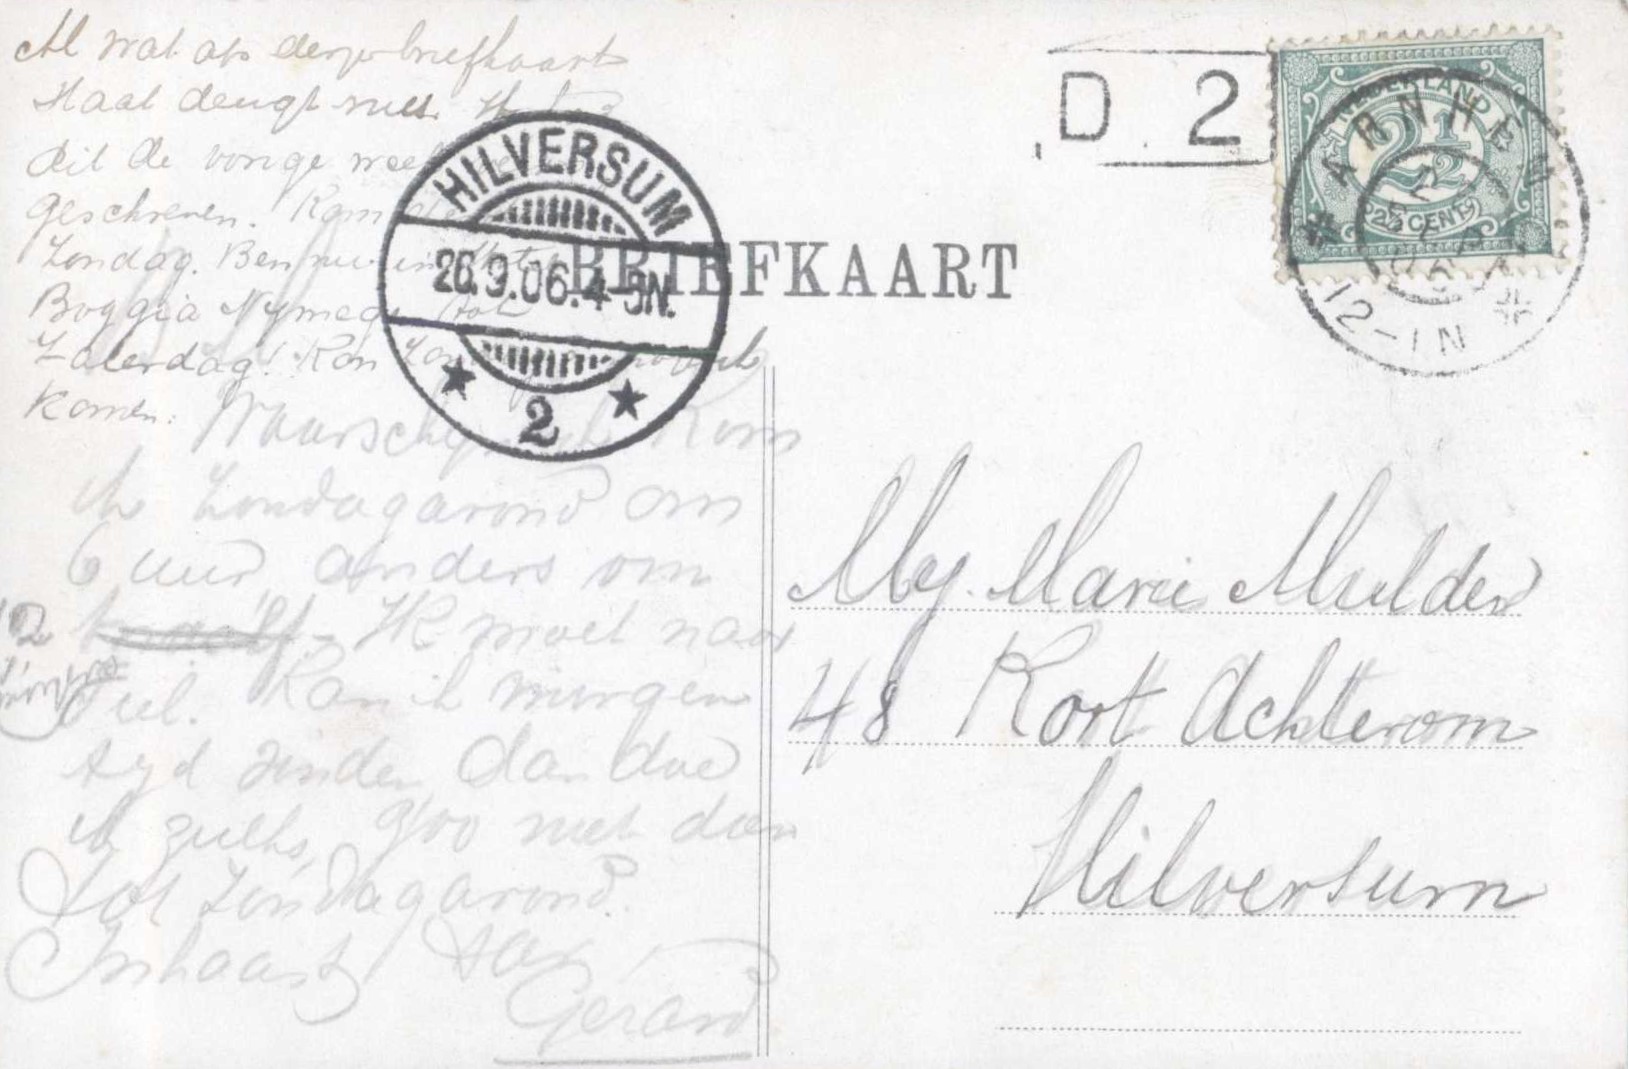 Al wat op deze briefkaart
staat deugt niet. Ik heb
dit de vorige week
geschreven. Kom
Zondag. Ben nu in Hotel
Boggia Nymegen tot
Zaterdag! Kan Zondag
komen.
Waarschijnlijk kom
ik Zondagavond om
6 uur anders om
12
Ik moet naar
Tiel. Kan ik morgen
tyd vinden dan doe
ik zulks, zoo niet dan
tot Zondagavond.
Inhaast
Gerard
HILVERSUM
26.9.06.4-5N.
2
BRIEFKAART
D. 2
NEDERLAND
2½
CENT
ARNHEM
12-1N
Mej. Marie Mulder
48 Kort Achterom
Hilversum